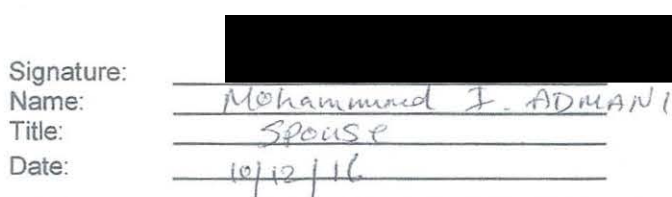 Signature:
Name: Mohammed I. ADMANI
Title: Spouse
Date: 10/12/16